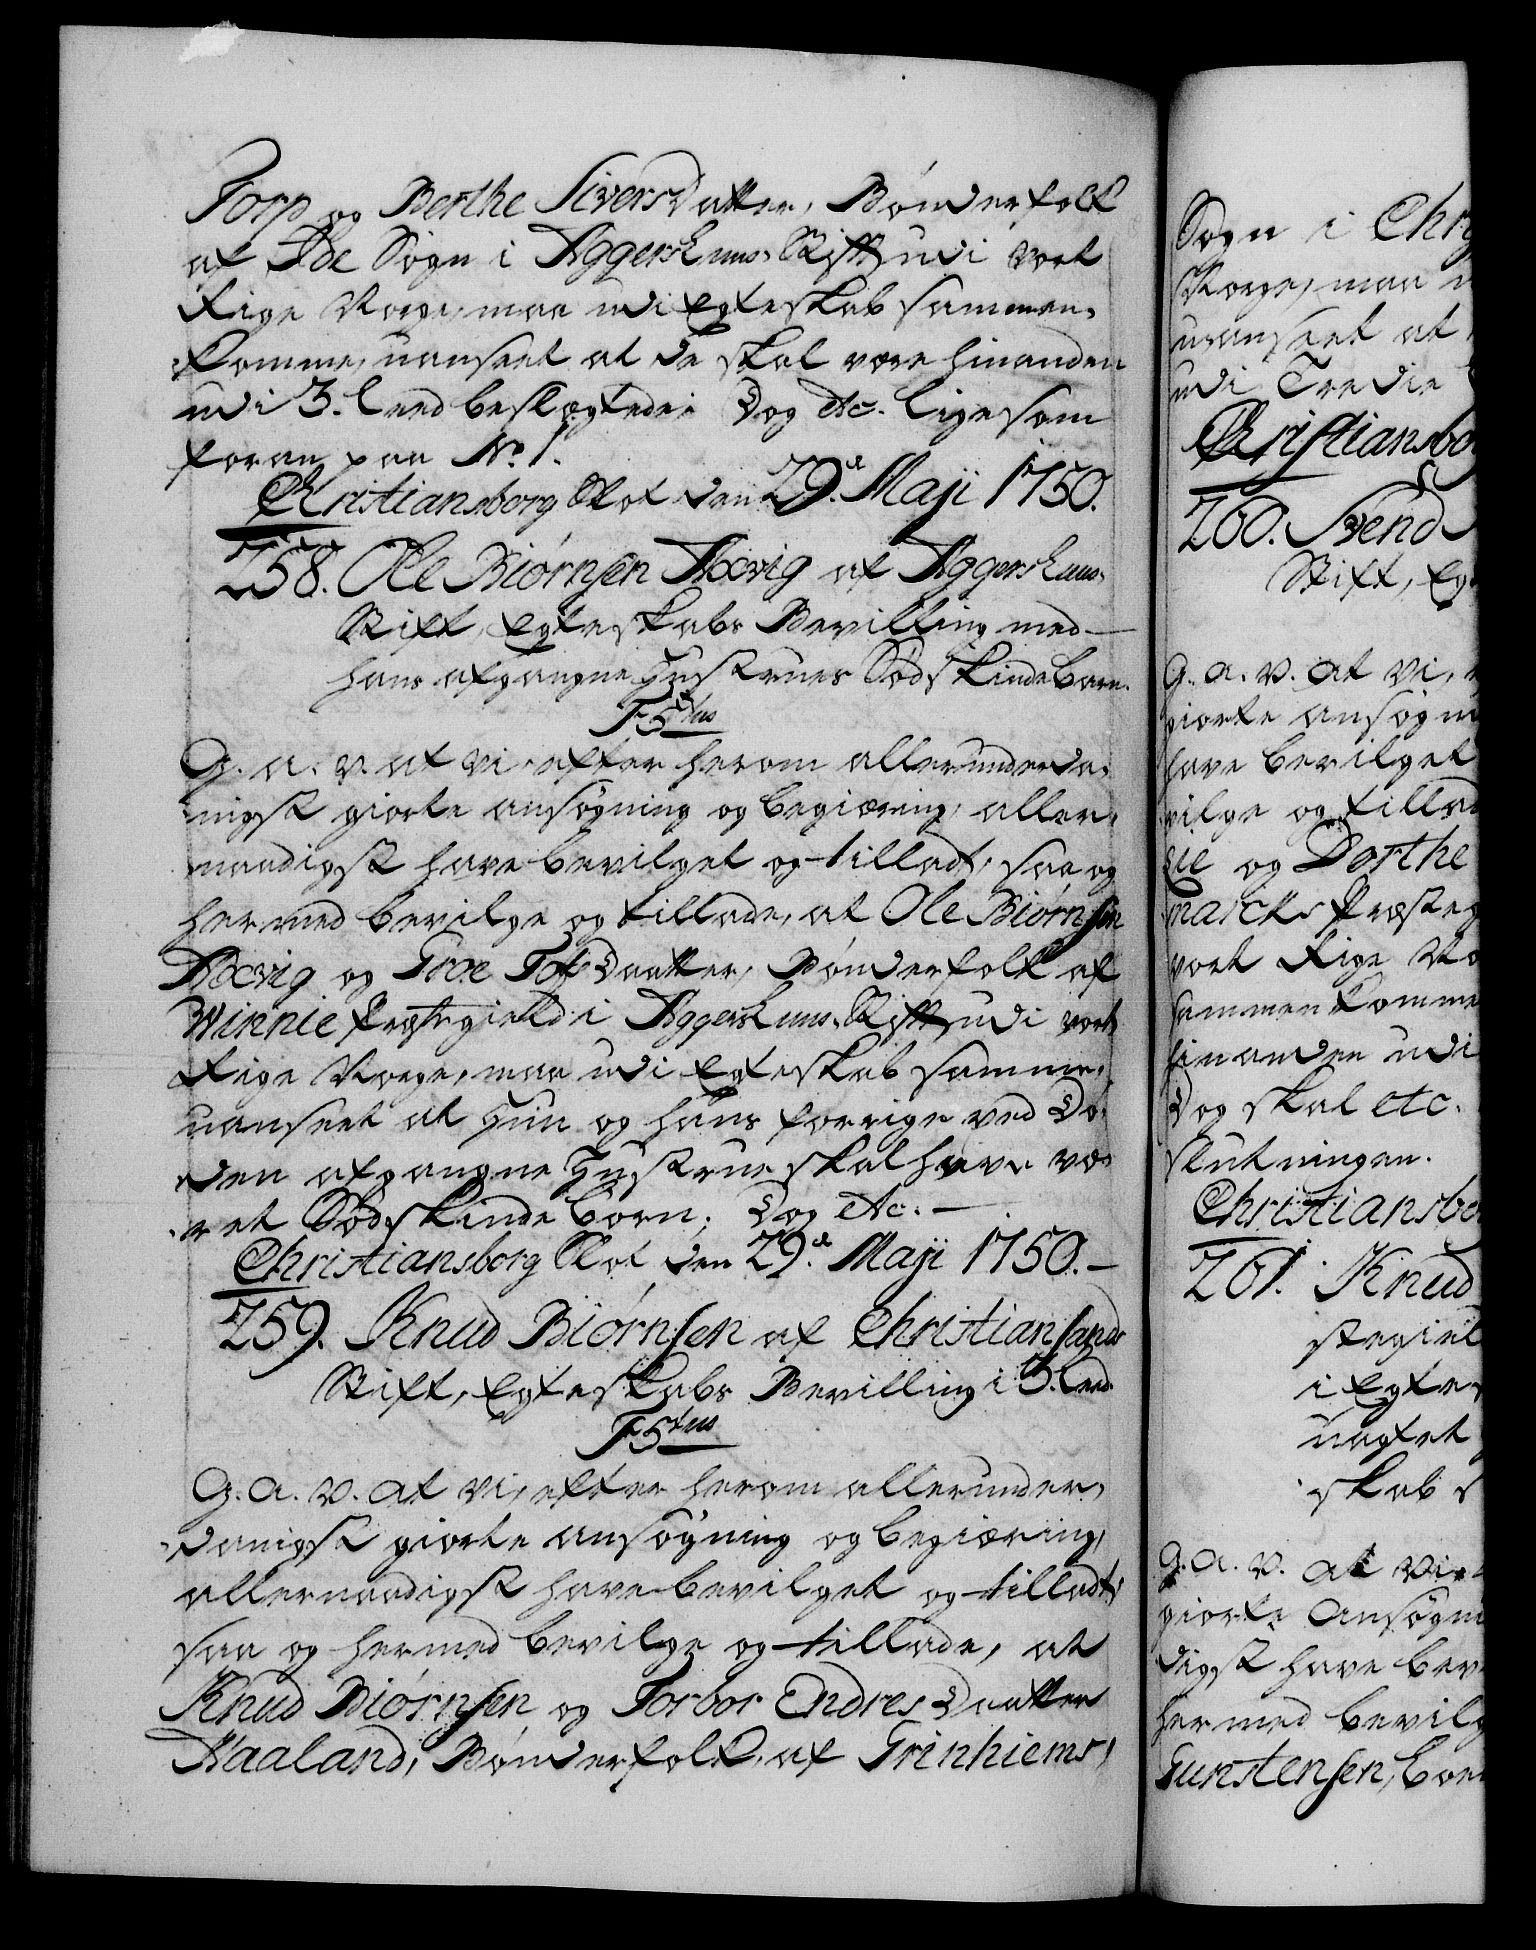 Torp og Berthe SiversDatter, Bønderfolk
af Ide Sogn i Aggershuus-Stift udi vort
Rige Norge, maa udi Egteskab sammen-
komme, uanseet at de skal være hinanden
udi 3. Leed beslægtede. Dog etc. ligesom
foran paa No. 1.
Christiansborg Slot den 29.d Maji 1750.
258. Ole Biørnsen Axvig af Aggershuus-
Stift, Egteskabs Bevilling med
hans afgangne Hustrues Sødskindebarn.
F 5tus
G. A. V. at Vi efter herom allerunderda-
nigst giorte ansøgning og begiæring, aller-
naadigst have bevilget og tilladt, saa og
hermed bevilge og tillade, at Ole Biørnsen
Axvig og Groe TofsDaatter, Bønderfolk af
Winnie Præstegield i Aggershuus-Stift udi vort
Rige Norge, maa udi Egteskab samme,
uanseet at Hun og hans forrige ved Dø-
den afgangne Hustrue skal have væ-
ret Sødskindebørn; Dog etc. —
Christiansborg Slot den 29.d Maji 1750. —
259. Knud Biørnsen af Christiansands
Stift, Egteskabs Bevilling i 3. Leed.
F 5tus
G. A. V. at Vi, efter herom allerunder-
danigst giorte ansøgning og begiæring,
allernaadigst have bevilget og tilladt,
saa og hermed bevilge og tillade, at
Knud Biørnsen og Torbor EndresDaatter
Haaland, Bønderfolk af Grinhiems,
Sogn i Chr
Norge, maa u
uanseet at
udi Tredie
Christiansbo
260. Svend
Stift, Eg
G. A. V. at Vi,
giorte ansøgn
have bevilget
vilge og tillad
og Dorthe
marcks Præsteg
vort Rige No
sammenkomme
hinanden udi
Dog skal etc.
slutningen.
Christiansbo
261. Knud
stegiel
i Egtes
uagtet
skab s
G. A. V. at Vi
giorte Ansøgn
digst have bev
hermed bevilg
Gunstensen, bo